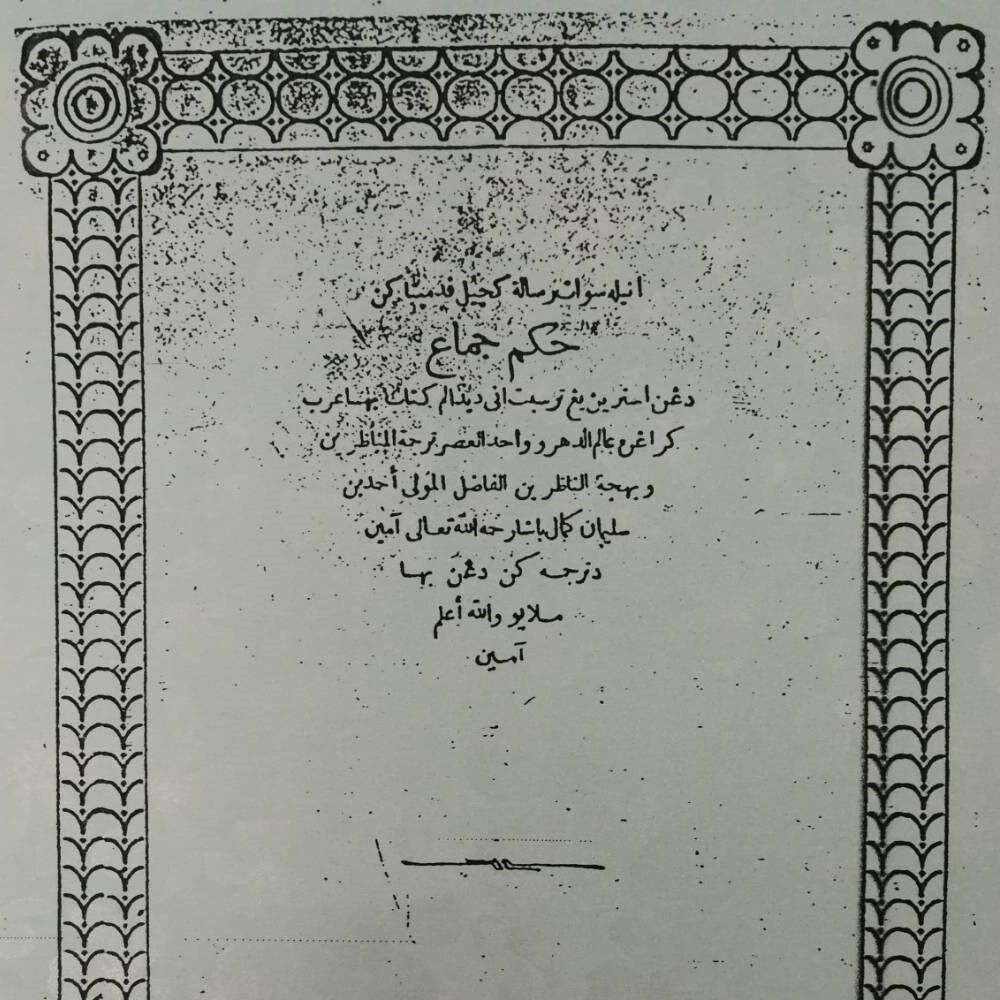 انيله سواتو رسالة كچيل ڤد مپتاكن
حكم جماع
دڠن استرين يڠ ترسبت اي ديدالم كتاب بهسا عرب
كراڠن عالم الدهر وواحد العصر ترجمة المناظرين
وبهجة الناظرين الفاضل المولى أحمد بن
سليمان كمال باشا رحمه الله تعالى آمين
دترجمه كن دڠن بهسا
ملايو والله أعلم
آمين